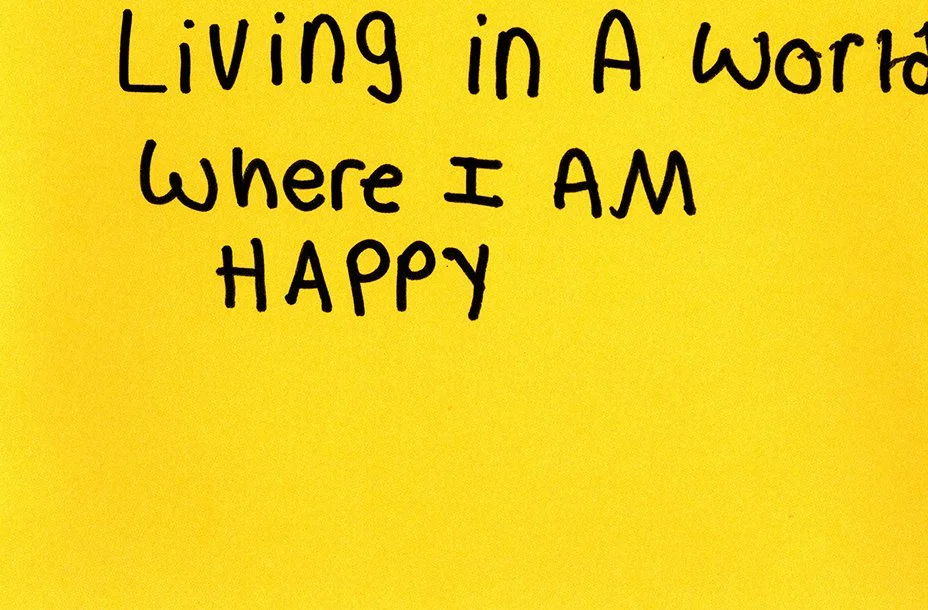 Living in A World
Where I AM
HAPPY